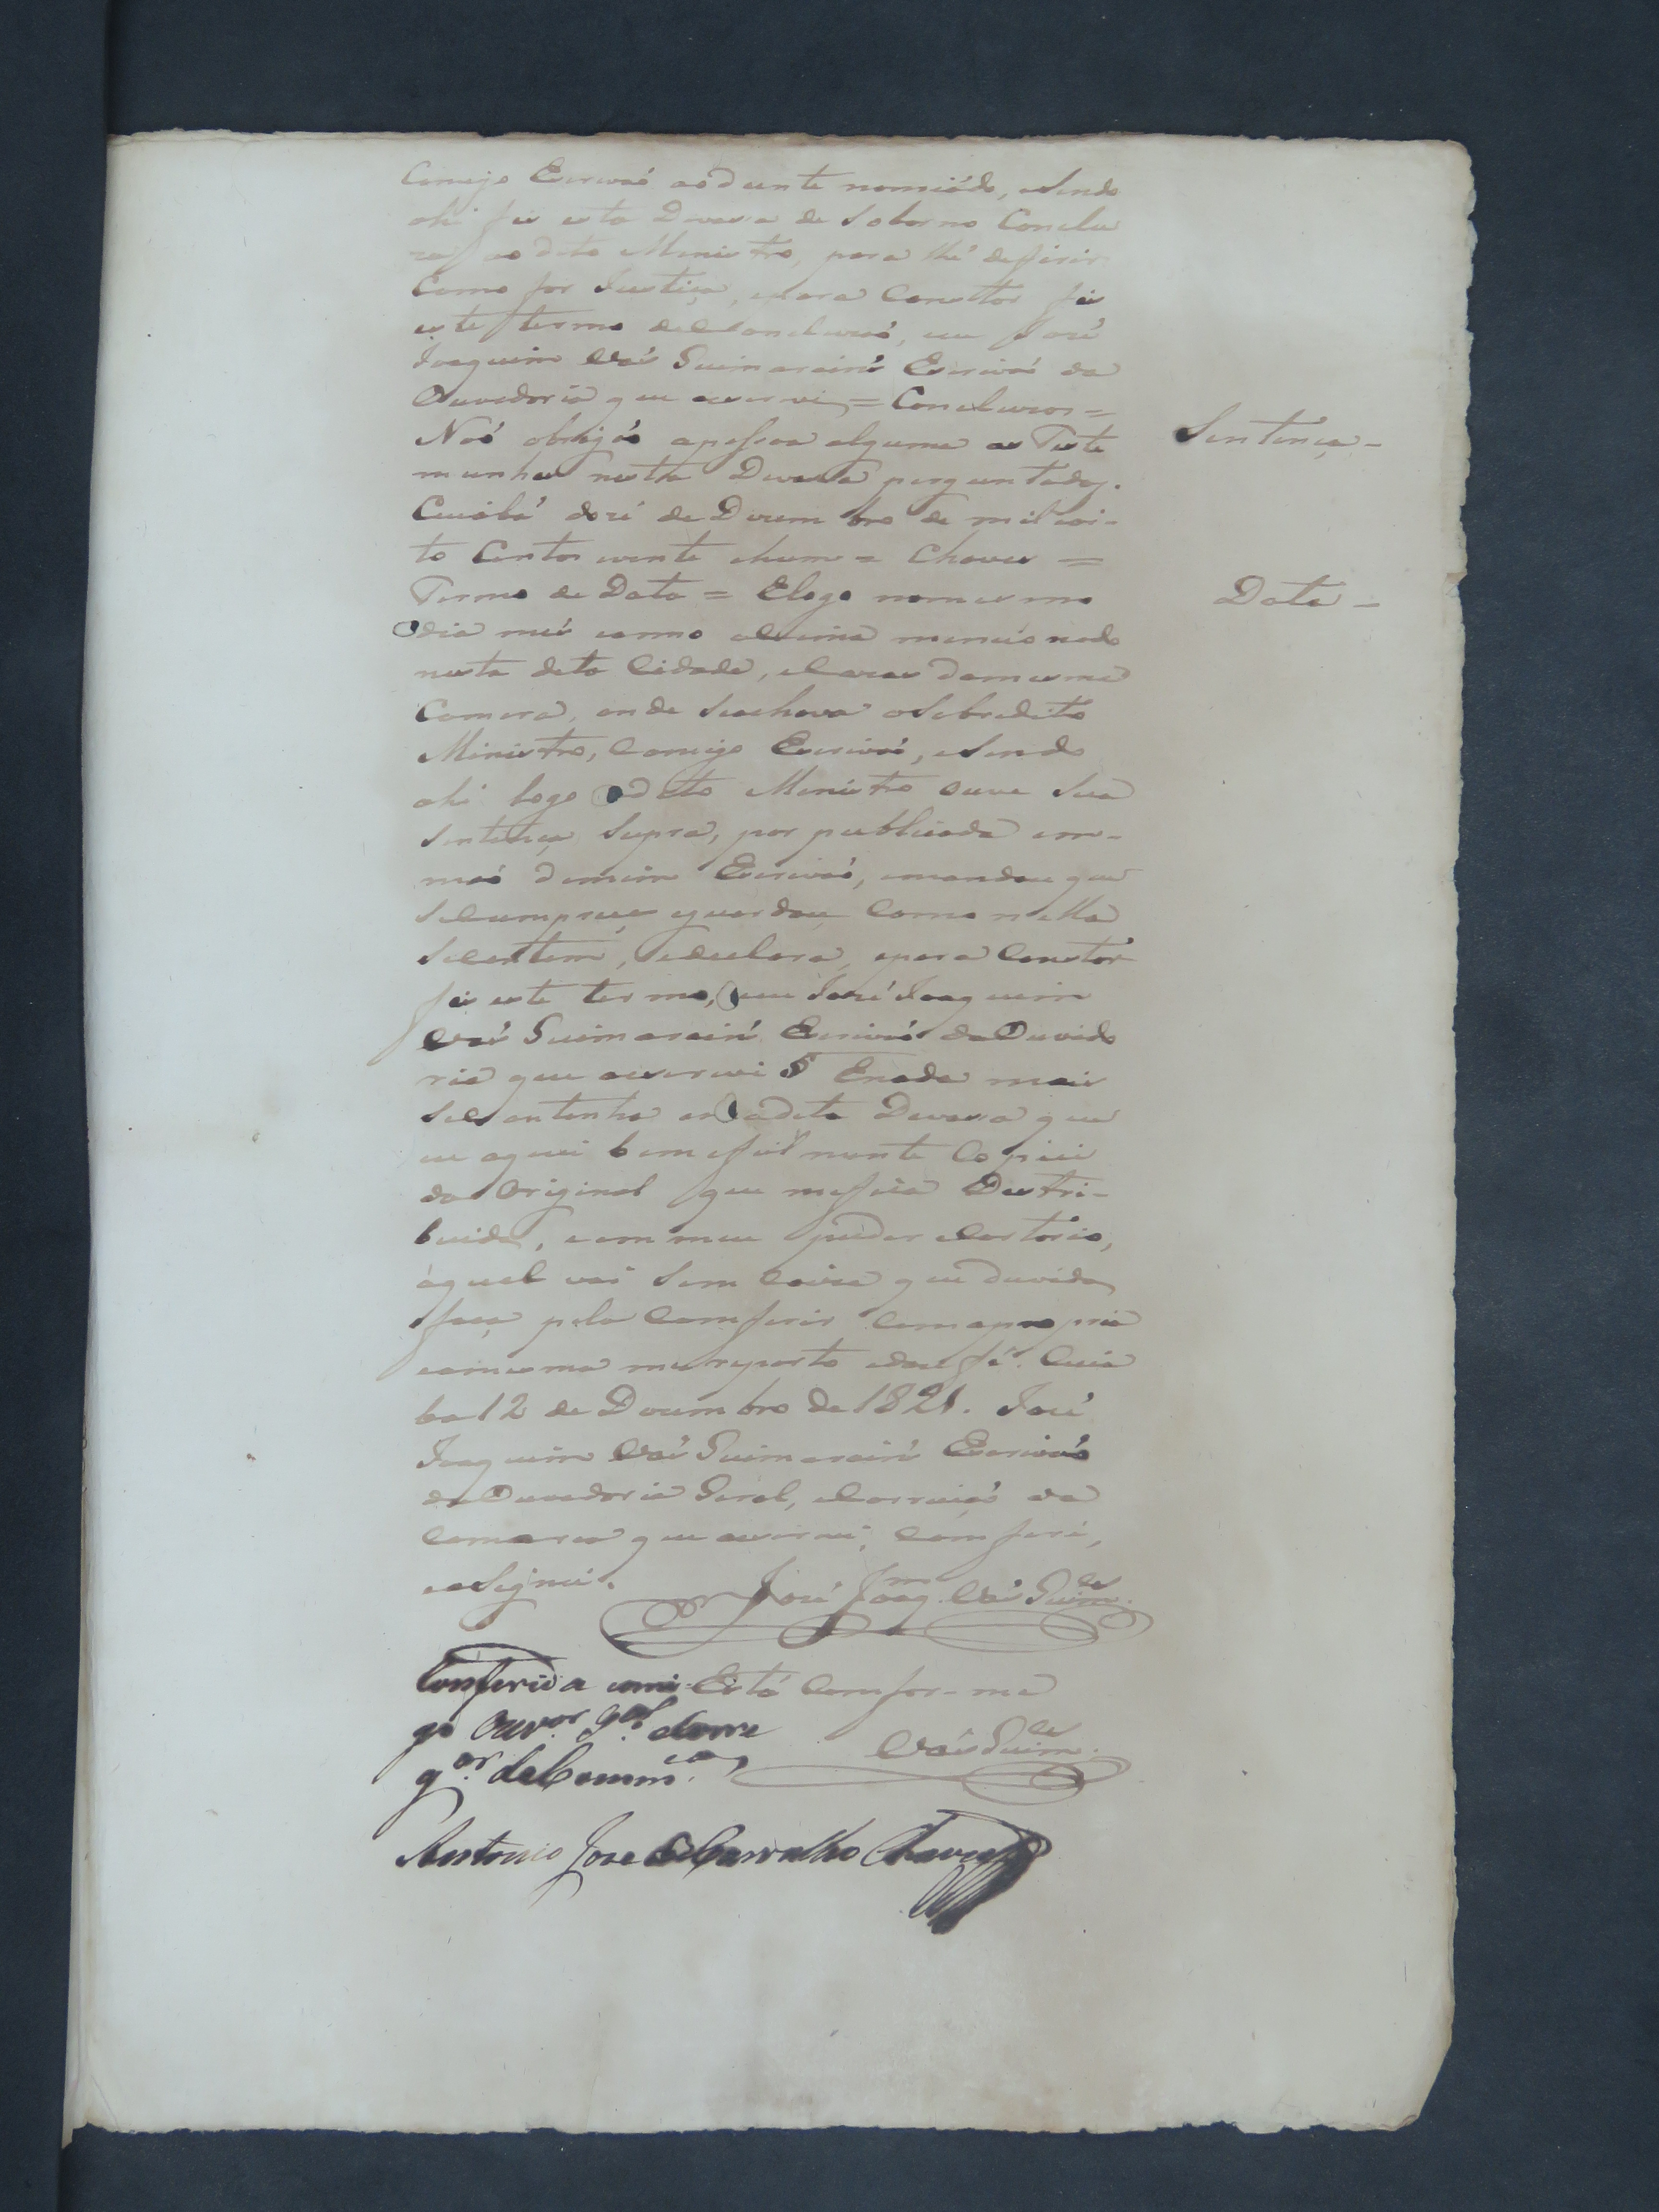 Comigo Escrivaó aodiante nomiádo, esendo
ahi fis esta Devaça de Soborno Conclu
za ao dito Menistro, para lhé defirir
Como for Justiça, epara Constar fis
este termo deConcluzaó, eu José
Joaquim Vás Guimaraiñs Escrivaó da
Ouvedoria que oescrevi = Concluzos =
Naó obrigaó apessoa alguma as Teste
munhas nesta Devaça perguntadas.
Cuiabá doze de Dezembro de mil oi-
to Centos evinte ehum = Chaves =
Termo de Data = Elogo nomesmo
dia mes eanno asima mencionado
nesta dita Cidade, eCazas damesma
Camera, onde seachava oSobredito
Ministro, Comigo Escrivaó, esendo
ahi logo odito Menistro ouve sua
Sentença Supra, por publicada em-
maó demim Escrivaó, emandou que
Secumprice eguardace Como nella
Secontem, Sedeclara, epara Constar
fis este termo, eeu José Joaquim
Vás Guimaraiñs Escrivaó daOuvido
ria que oescrevi § Enada mais
seContenha em adita Devaça que
eu aqui bem efielmente Copiei
do Original que mefoia Destri-
buida, eem meu puder eCartorio,
aqual vai Sem Coiza que duvida
faça pela Comferir Comapropria
eamesma mereporto edou fé. Cuia
ba 12 de Dezembro de 1821. José
Joaquim Vás Guimaraiñs Escrivaó
da Ouvedoria Geral, eCorreiçaó da
Comarca que oescrevi, Comferi,
easignei.
José Joaqm. Vás Guimes.
Conferida comi-
go Ouvor. gal. eCorre
gor. daCommca.
Está Comfor-me
Vás Guimes.
Antonio Jose deCarvalho Chaves
Sentença -
Data -